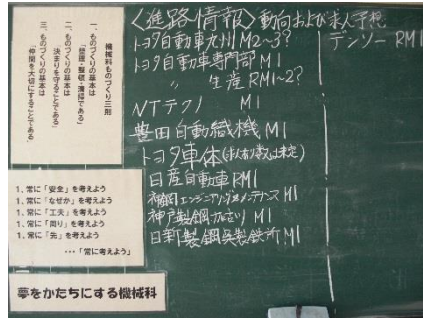 機械科ものづくり三則
一、ものづくりの基本は
「整理・整頓・清掃である」
二、ものづくりの基本は
「きまりを守ることである」
三、ものづくりの基本は
「仲間を大切にすることである」
1. 常に「安全」を考えよう
1. 常に「なぜか」を考えよう
1. 常に「工夫」を考えよう
1. 常に「周り」を考えよう
1. 常に「先」を考えよう
…「常に考えよう」
夢をかたちにする機械科
〈進路情報〉動向および求人予想
トヨタ自動車九州 M2~3?
トヨタ自動車専門部 M1
〃 生産 RM1~2?
NTテクノ M1
豊田自動織機 M1
トヨタ車体(求人有り数は未定)
日産自動車 RM1
エンジニアリング メンテナンス M1
神戸製鋼 M1
日新製鋼呉製鉄所 M1
デンソー RM1